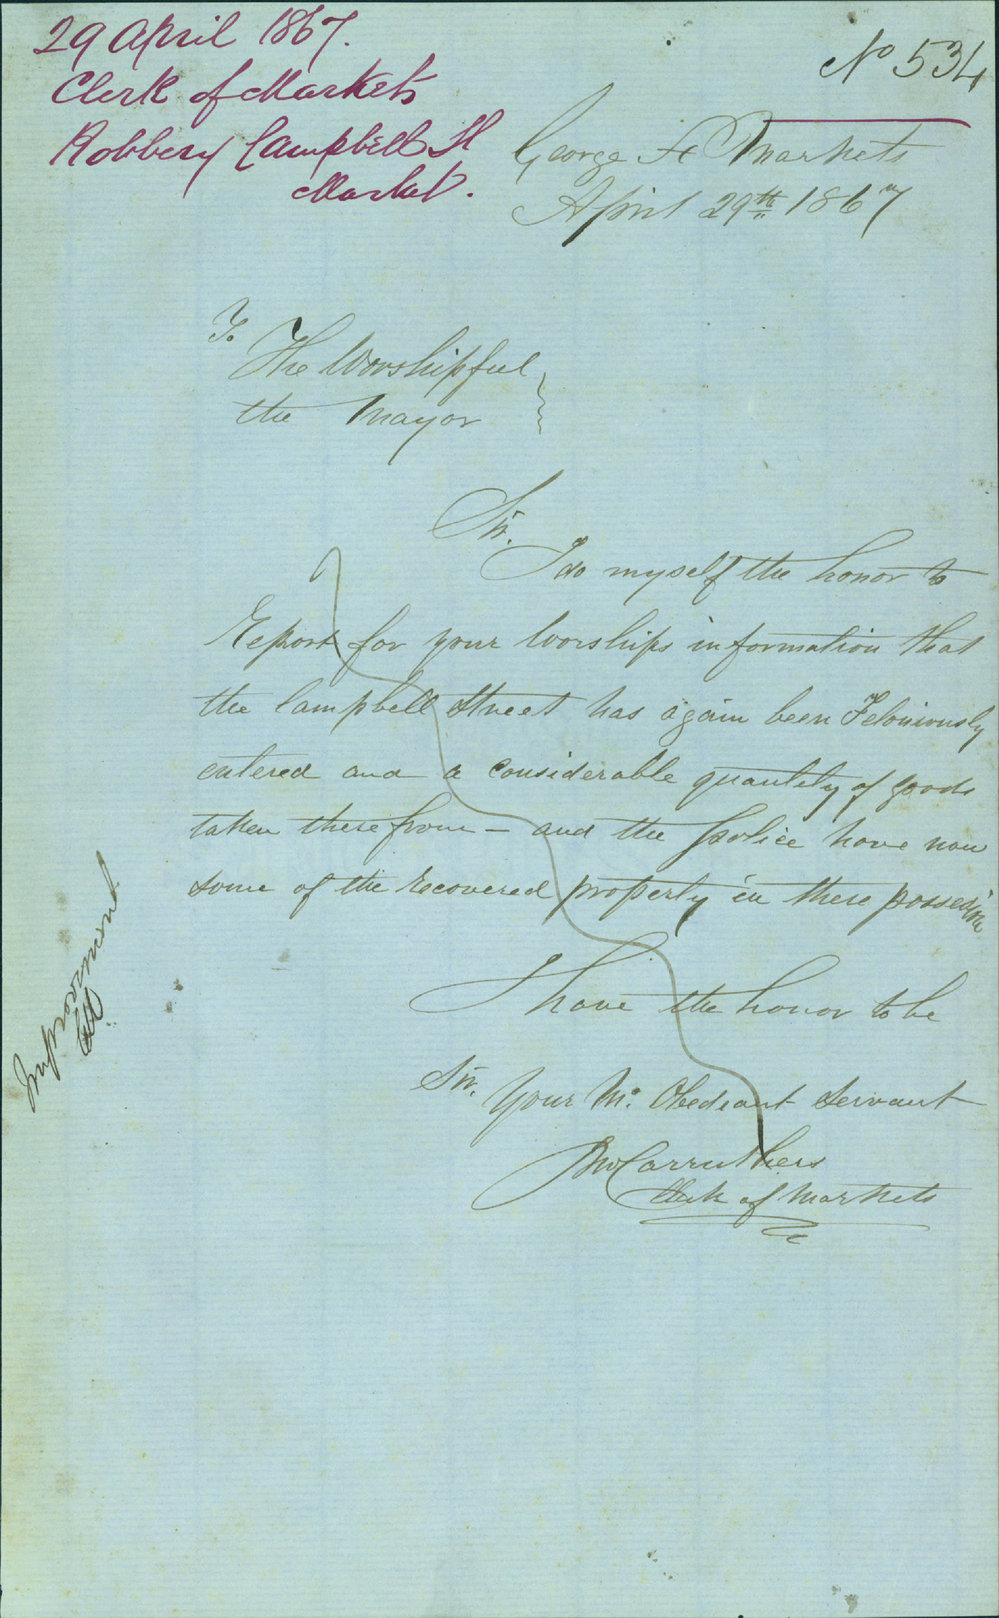 29 April 1867.
Clerk of Markets
Robbery Campbell St
Market.
No 534
George St Markets
April 29th 1867
To
The Worshipful
the Mayor
Sir.
I do myself the honor to
Report for your Worships information that
the Campbell Street has again been Feloniously
entered and a considerable quantity of goods
taken therefrom – and the police have now
some of the recovered property in there possession
I have the honor to be
Sir. Your Mo. Obedeant Servant
Jno Carruthers
Clerk of Markets
Improvement